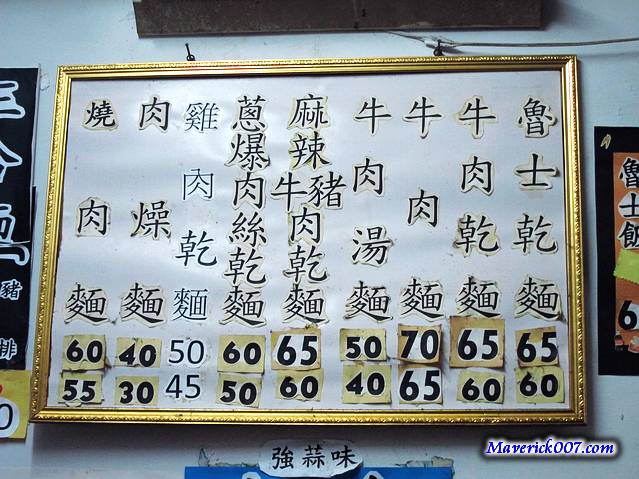 魯士飯
6
魯士乾麵 65 60
牛肉乾麵 65 60
牛肉麵 70 65
牛肉湯麵 50 40
麻辣牛豬肉乾麵 65 60
蔥爆肉絲乾麵 60 50
雞肉乾麵 50 45
肉燥麵 40 30
燒肉麵 60 55
豬排
0
強蒜味
Maverick007.com